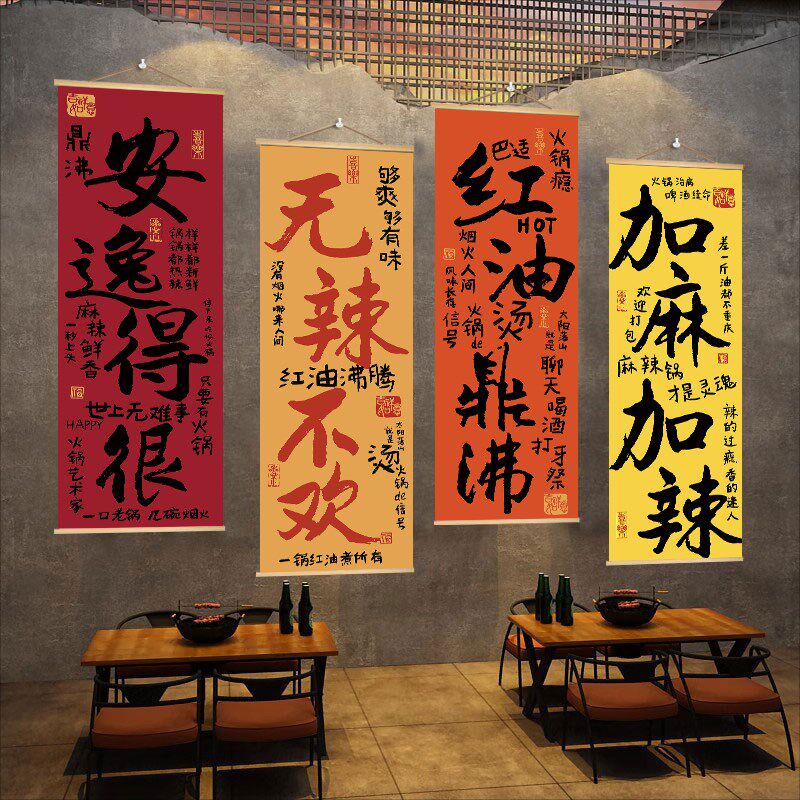 鼎沸
安逸得很
样样都新鲜
锅锅都热辣
麻辣鲜香
一秒上头
只要有火锅
世上无难事
HAPPY
火锅艺术家
一口老锅 几碗烟火
够爽够有味
无辣不欢
没有烟火哪来人间
红油沸腾
太阳落山
就是
火锅de信号
烫
一锅红油煮所有
巴适
火锅瘾
红油鼎沸
HOT
烟火人间
风味长存
烫
太阳落山
就是
火锅de
信号
聊天喝酒
打牙祭
火锅治病
啤酒续命
加麻加辣
差一斤油都不重庆
欢迎
打包
麻辣锅
才是灵魂
辣的过瘾
香的迷人